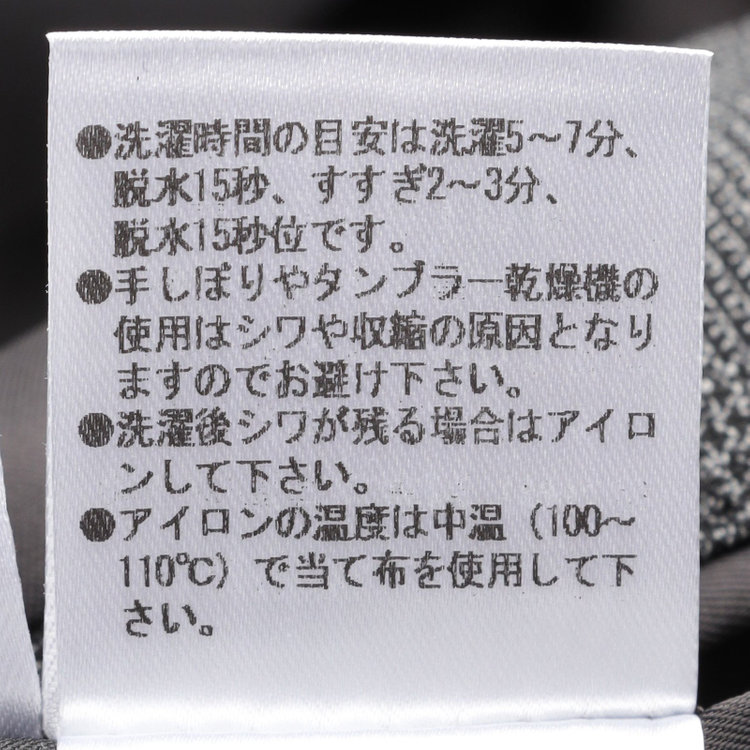 ●洗濯時間の目安は洗濯5～7分、
脱水15秒、すすぎ2～3分、
脱水15秒位です。
●手しぼりやタンブラー乾燥機の
使用はシワや収縮の原因となり
ますのでお避け下さい。
●洗濯後シワが残る場合はアイロ
ンして下さい。
●アイロンの温度は中温（100～
110℃）で当て布を使用して下
さい。